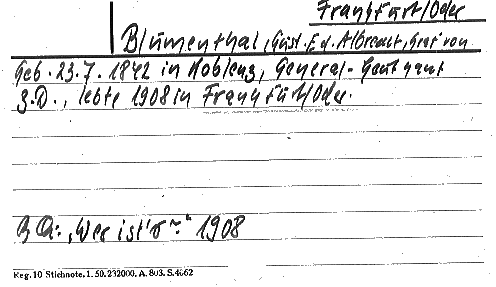 Frankfurt/Oder
Blumenthal, Gust. Ed. Albrecht, Graf von
Geb. 23.7.1842 in Koblenz, General-Leutnant
z.D., lebte 1908 in Frankfurt/Oder.
BQ: "Wer ist's?" 1908
Reg. 10 Stichnote. 1. 50. 232000. A. 803. S. 4662